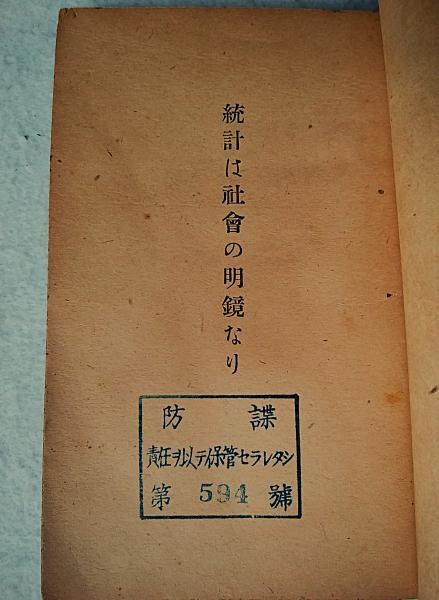 統計は社會の明鏡なり
防諜
責任ヲ以テ保管セラレタシ
第594號